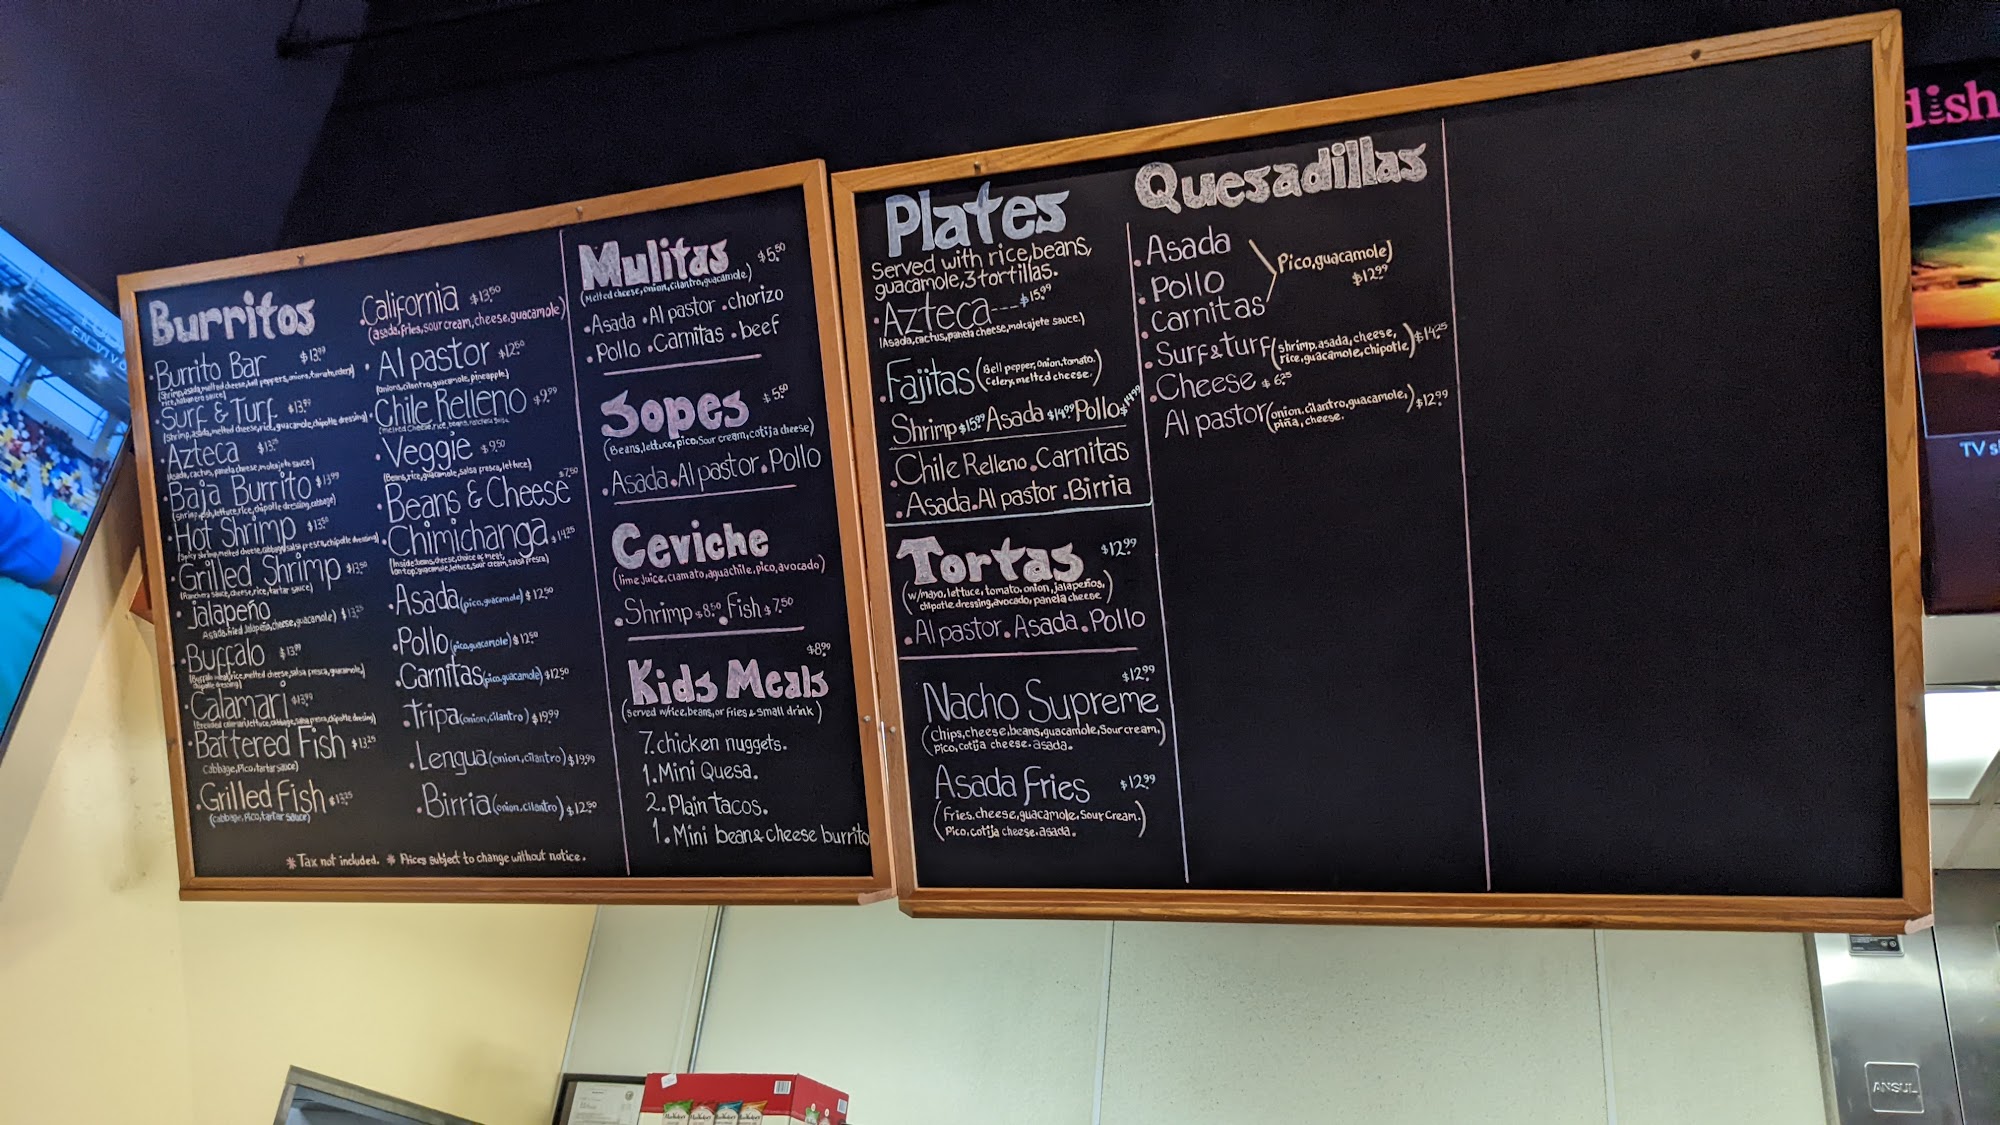 Burritos
Burrito Bar $13.99
(Shrimp, asada, melted cheese, bell peppers, onions, tomato, celery
rice, habanero sauce)
Surf & Turf $13.99
(Shrimp, asada, melted cheese, rice, guacamole, chipotle dressing)
Azteca $13.25
(Asada, cactus, panela cheese, molcajete sauce)
Baja Burrito $13.99
(Shrimp, fish, lettuce, rice, chipotle dressing, cabbage)
Hot Shrimp $13.50
(Spicy shrimp, melted cheese, cabbage, salsa fresca, chipotle dressing)
Grilled Shrimp $13.50
(Ranchera sauce, cheese, rice, tartar sauce)
Jalapeño $13.25
Asada, fried Jalapeño, cheese, guacamole)
Buffalo $13.99
(Buffalo meat, rice, melted cheese, salsa fresca, guacamole,
chipotle dressing)
Calamari $13.99
(Breaded calamari, lettuce, cabbage, salsa fresca, chipotle dressing)
Battered Fish $13.25
Cabbage, Pico, tartar sauce)
Grilled Fish $13.25
(cabbage, Pico, tartar sauce)
California $13.50
(asada, fries, sour cream, cheese, guacamole)
Al pastor $12.50
(onions, cilantro, guacamole, pineapple)
Chile Relleno $9.99
(melted Cheese, rice, beans, ranchera salsa
Veggie $9.50
(Beans, rice, guacamole, salsa fresca, lettuce)
Beans & Cheese $7.50
Chimichanga $14.25
(Inside: beans, cheese, choice of meat,
on top: guacamole, lettuce, sour cream, salsa fresca)
Asada (pico, guacamole) $12.50
Pollo (pico, guacamole) $12.50
Carnitas (pico, guacamole) $12.50
Tripa (onion, cilantro) $19.99
Lengua (onion, cilantro) $19.99
Birria (onion, cilantro) $12.50
* Tax not included. * Prices subject to change without notice.
Mulitas $5.50
(Melted cheese, onion, cilantro, guacamole)
Asada . Al pastor . chorizo
Pollo . Carnitas . beef
Sopes $5.50
(Beans, lettuce, pico, sour cream, cotija cheese)
Asada . Al pastor . Pollo
Ceviche
(lime juice, clamato, aguachile, pico, avocado)
Shrimp $8.50 . Fish $7.50
Kids Meals $8.99
(served w/rice, beans, or fries & small drink)
7. chicken nuggets.
1. Mini Quesa.
2. Plain tacos.
1. Mini bean & cheese burrito
Plates
Served with rice, beans,
guacamole, 3 tortillas.
Azteca --- $15.99
(Asada, cactus, panela cheese, molcajete sauce.)
Fajitas (Bell pepper, onion, tomato.
Celery, melted cheese.)
Shrimp $15.99 Asada $14.99 Pollo $14.99
Chile Relleno . Carnitas
Asada . Al pastor . Birria
Tortas $12.99
(w/mayo, lettuce, tomato, onion, jalapeños,
chipotle dressing, avocado, panela cheese)
Al pastor . Asada . Pollo
Nacho Supreme $12.99
(Chips, cheese, beans, guacamole, Sour cream,
Pico, cotija cheese. asada.
Asada Fries $12.99
(Fries, cheese, guacamole, Sour Cream.
Pico, cotija cheese. asada.
Quesadillas
Asada
Pollo
Carnitas
Pico, guacamole)
$12.99
Surf & turf (shrimp, asada, cheese,
rice, guacamole, chipotle) $14.25
Cheese $6.25
Al pastor (onion, cilantro, guacamole,
piña, cheese. ) $12.99
dish
ANSUL